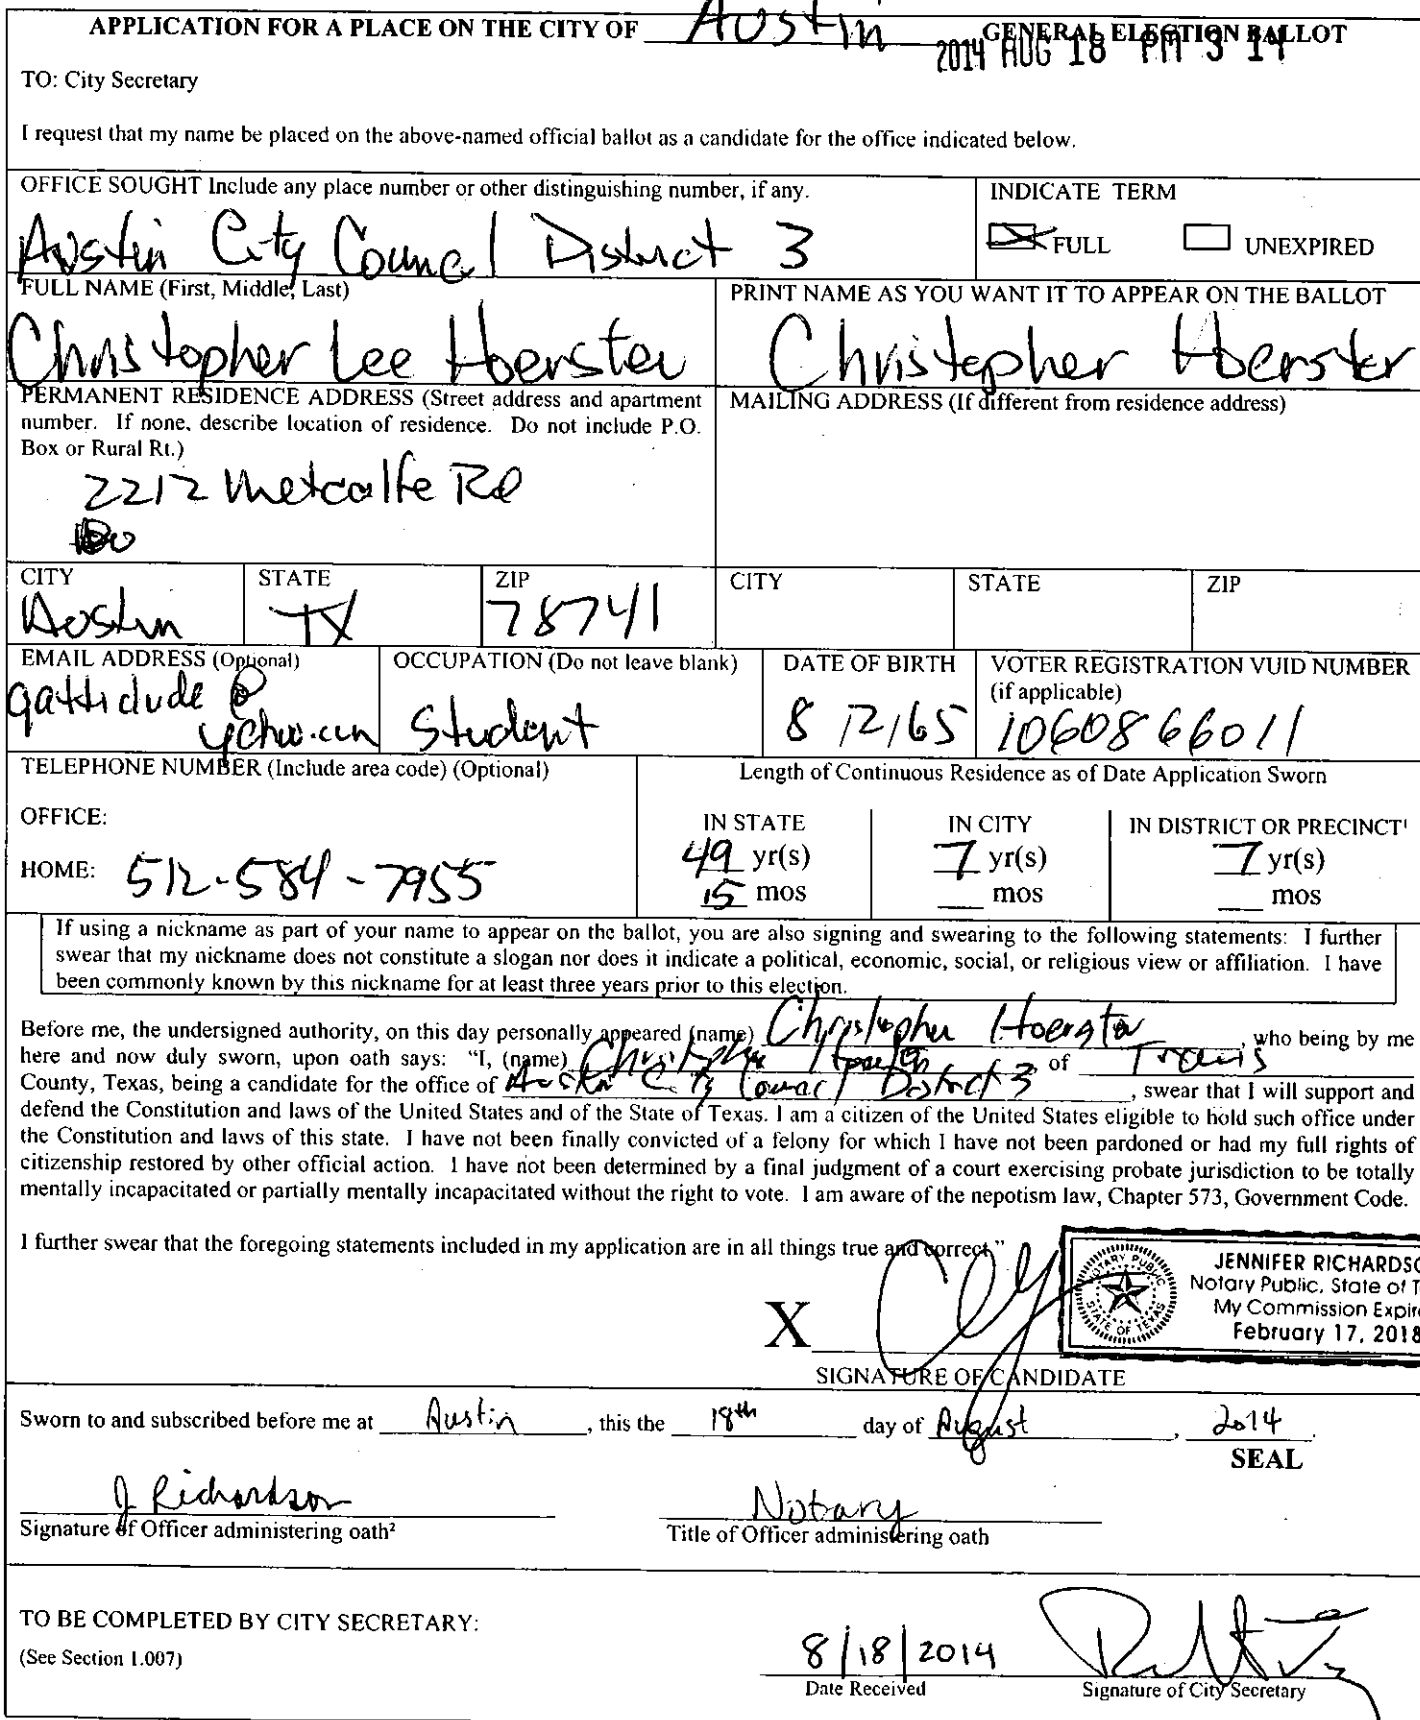 APPLICATION FOR A PLACE ON THE CITY OF Austin GENERAL ELECTION BALLOT
2014 AUG 18 PM 3 14
TO: City Secretary
I request that my name be placed on the above-named official ballot as a candidate for the office indicated below.
OFFICE SOUGHT Include any place number or other distinguishing number, if any.
Austin City Council District 3
INDICATE TERM
FULL UNEXPIRED
FULL NAME (First, Middle, Last)
Christopher Lee Hoerster
PRINT NAME AS YOU WANT IT TO APPEAR ON THE BALLOT
Christopher Hoerster
PERMANENT RESIDENCE ADDRESS (Street address and apartment
number. If none, describe location of residence. Do not include P.O.
Box or Rural Rt.)
2212 Metcalfe Rd
MAILING ADDRESS (If different from residence address)
CITY STATE ZIP CITY STATE ZIP
Austin TX 78741
EMAIL ADDRESS (Optional)
gattidude@
yahoo.com
OCCUPATION (Do not leave blank)
Student
DATE OF BIRTH
8/2/65
VOTER REGISTRATION VUID NUMBER
(if applicable)
1060866011
TELEPHONE NUMBER (Include area code) (Optional)
OFFICE:
HOME: 512-584-7955
Length of Continuous Residence as of Date Application Sworn
IN STATE IN CITY IN DISTRICT OR PRECINCT¹
49 yr(s) 7 yr(s) 7 yr(s)
15 mos mos mos
If using a nickname as part of your name to appear on the ballot, you are also signing and swearing to the following statements: I further
swear that my nickname does not constitute a slogan nor does it indicate a political, economic, social, or religious view or affiliation. I have
been commonly known by this nickname for at least three years prior to this election.
Before me, the undersigned authority, on this day personally appeared (name) Christopher Hoerster, who being by me
here and now duly sworn, upon oath says: "I, (name) Christopher Hoerster of Travis
County, Texas, being a candidate for the office of Austin City Council District 3, swear that I will support and
defend the Constitution and laws of the United States and of the State of Texas. I am a citizen of the United States eligible to hold such office under
the Constitution and laws of this state. I have not been finally convicted of a felony for which I have not been pardoned or had my full rights of
citizenship restored by other official action. I have not been determined by a final judgment of a court exercising probate jurisdiction to be totally
mentally incapacitated or partially mentally incapacitated without the right to vote. I am aware of the nepotism law, Chapter 573, Government Code.
I further swear that the foregoing statements included in my application are in all things true and correct."
NOTARY PUBLIC
STATE OF TEXAS
JENNIFER RICHARDSO
Notary Public, State of T
My Commission Expire
February 17, 2018
X
SIGNATURE OF CANDIDATE
Sworn to and subscribed before me at Austin, this the 18th day of August, 2014.
SEAL
J Richardson Notary
Signature of Officer administering oath² Title of Officer administering oath
TO BE COMPLETED BY CITY SECRETARY:
(See Section 1.007)
8/18/2014
Date Received Signature of City Secretary